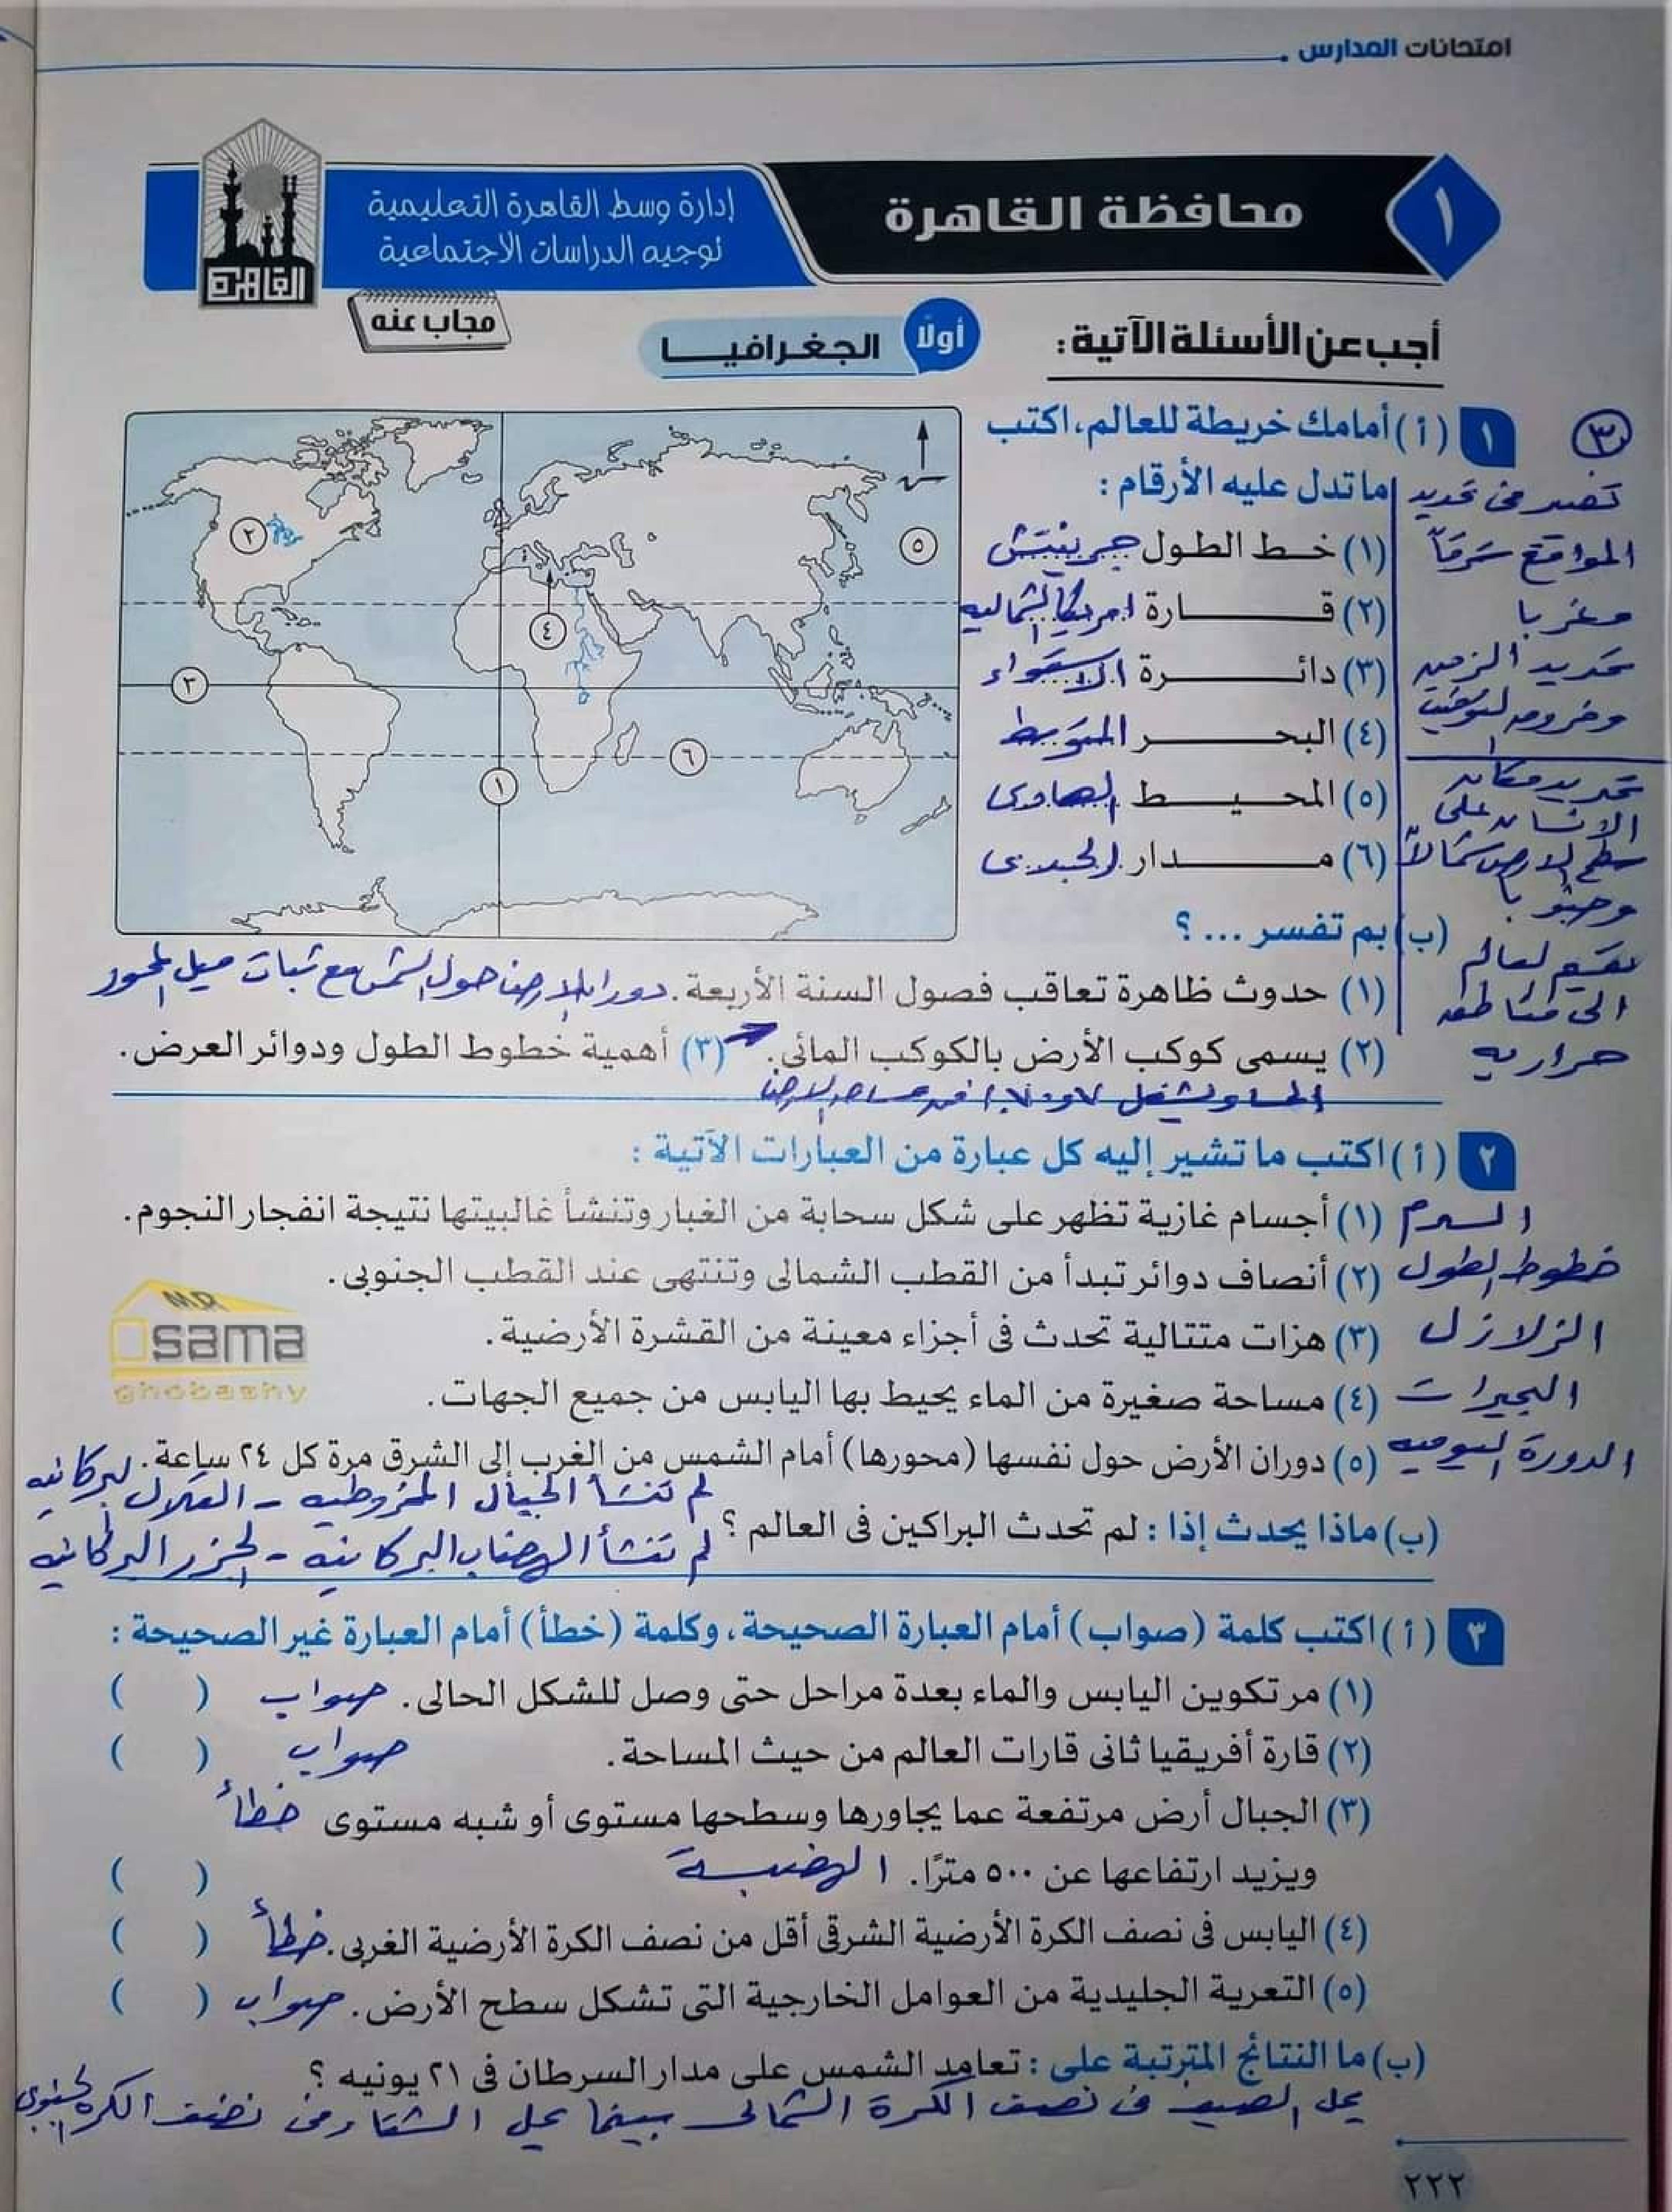 امتحانات المدارس
١
محافظة القاهرة
إدارة وسط القاهرة التعليمية
توجيه الدراسات الاجتماعية
القاهرة
مجاب عنه
أجب عن الأسئلة الآتية :
أولًا
الجغرافيا
١ (أ) أمامك خريطة للعالم، اكتب
ما تدل عليه الأرقام :
(١) خط الطول جرينتش
(٢) قارة امريكا الشماليه
(٣) دائرة الاستواء
(٤) البحر المتوسط
(٥) المحيط الهادى
(٦) مدار الجدى
٢
٥
٤
٣
٦
١
٣
تفيد فى تحديد
المواقع شرقاً
وغربا
تحديد الزمن
وفروق التوقيت
تحديد مكان
الانسان على
سطح الارض شمالاً
وجنوبا
تقسيم العالم
الى مناطق
حراريه
(ب) بم تفسر ... ؟
(١) حدوث ظاهرة تعاقب فصول السنة الأربعة. دوران الارض حول الشمس مع ثبات ميل المحور
(٢) يسمى كوكب الأرض بالكوكب المائى. (٣) أهمية خطوط الطول ودوائر العرض.
الماء يشغل من مساحه الارض
٢ (أ) اكتب ما تشير إليه كل عبارة من العبارات الآتية :
(١) أجسام غازية تظهر على شكل سحابة من الغبار وتنشأ غالبيتها نتيجة انفجار النجوم. السدم
(٢) أنصاف دوائر تبدأ من القطب الشمالى وتنتهى عند القطب الجنوبى. خطوط الطول
(٣) هزات متتالية تحدث فى أجزاء معينة من القشرة الأرضية. الزلازل
(٤) مساحة صغيرة من الماء يحيط بها اليابس من جميع الجهات. البحيرات
(٥) دوران الأرض حول نفسها (محورها) أمام الشمس من الغرب إلى الشرق مرة كل ٢٤ ساعة. الدورة اليوميه
MR
Osama
ghobashy
لم تنشأ الجبال المخروطيه - التلال البركانيه
(ب) ماذا يحدث إذا : لم تحدث البراكين فى العالم ؟
لم تنشأ الهضاب البركانيه - الجزر البركانيه
٣ (أ) اكتب كلمة (صواب) أمام العبارة الصحيحة، وكلمة (خطأ) أمام العبارة غير الصحيحة :
(١) مر تكوين اليابس والماء بعدة مراحل حتى وصل للشكل الحالى. صواب ( )
(٢) قارة أفريقيا ثانى قارات العالم من حيث المساحة. صواب ( )
(٣) الجبال أرض مرتفعة عما يجاورها وسطحها مستوى أو شبه مستوى خطأ
ويزيد ارتفاعها عن ٥٠٠ مترًا. الهضبة ( )
(٤) اليابس فى نصف الكرة الأرضية الشرقى أقل من نصف الكرة الأرضية الغربى. خطأ ( )
(٥) التعرية الجليدية من العوامل الخارجية التى تشكل سطح الأرض. صواب ( )
(ب) ما النتائج المترتبة على : تعامد الشمس على مدار السرطان فى ٢١ يونيه ؟
يحل الصيف فى نصف الكرة الشمالى بينما يحل الشتاء فى نصف الكره الجنوبى
٢٢٢